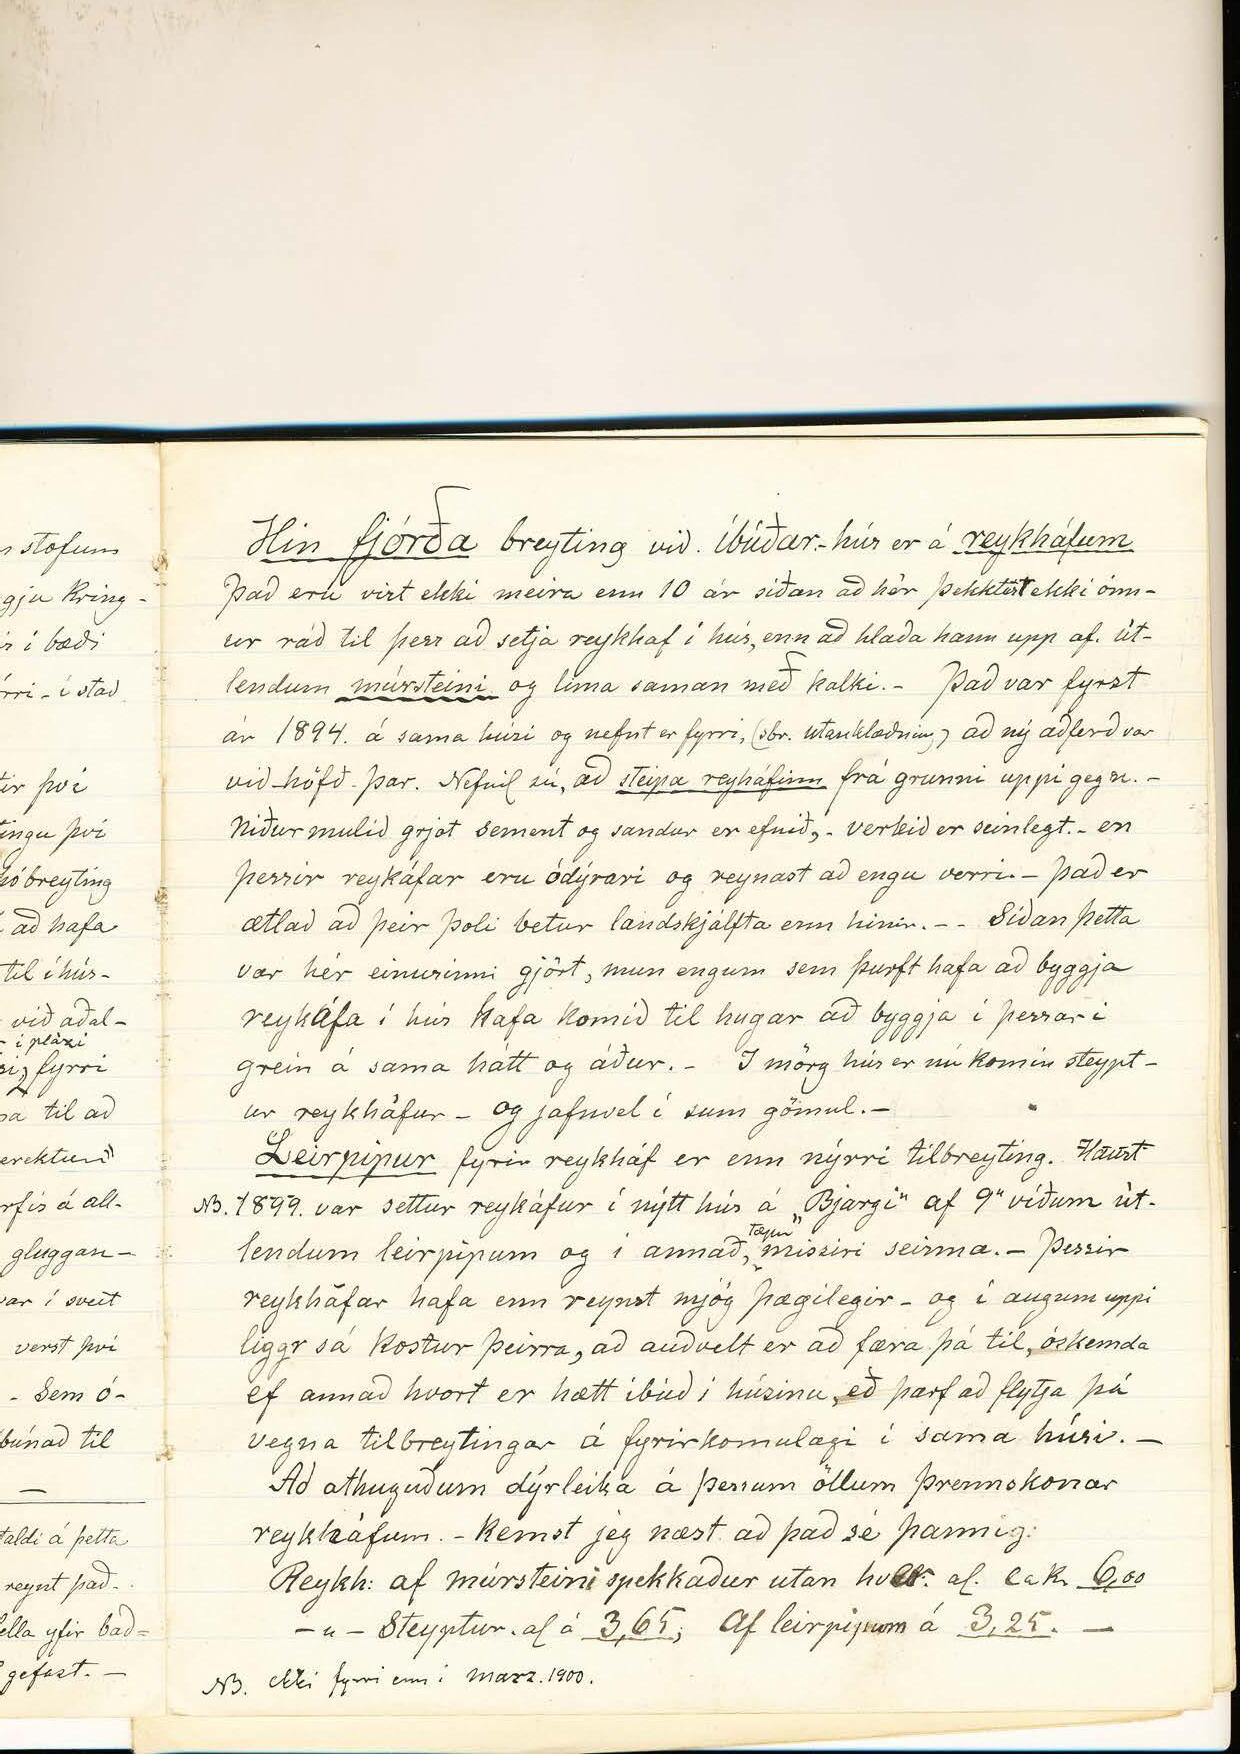 stofum
gju kring-
í bæði
rri - í stað
ir því
tingu því
breyting
að hafa
til í hús-
við aðal-
í plássi
fyrri
til að
á all-
gluggan-
var í sveit
verst því
- Sem ó-
búnað til
taldi á þetta
reynt það.
ella yfir bað=
gefast. -
Hin fjórða breyting við íbúðar-hús er á reykháfum
Það eru vist ekki meira enn 10 ár síðan að hér þekktist ekki önn-
ur ráð til þess að setja reykhaf í hús, enn að hlaða hann upp af. út-
lendum múrsteini og líma saman með kalki. - Það var fyrst
ár 1894. á sama húsi og nefnt er fyrri, (sbr. utanklæðning) að ný aðferð var
við höfð þar. Nefnil sú, að steipa reykháfinn frá grunni uppi gegn. -
Niðurmulið grjót sement og sandur er efnið, - verkið er seinlegt. - en
þessir reykáfar eru ódýrari og reynast að engu verri. - Það er
ætlað að þeir þoli betur landskjálfta enn hinir. - - Síðan þetta
var hér einusinni gjört, mun engum sem þurft hafa að byggja
reykáfa í hús hafa komið til hugar að byggja í þessari
grein á sama hátt og áður. - I mörg hús er nú komin steypt-
ur reykháfur - og jafnvel í sum gömul. -
Leirpípur fyrir reykháf er enn nýrri tilbreyting. Haust
NB. 1899. var settur reykáfur í nýtt hús á „Bjargi" af 9" víðum út-
lendum leirpípum og í annað, „tæpu" missiri seinna. - Þessir
reykháfar hafa enn reynst mjög þægilegir - og í augum uppi
liggr sá kostur þeirra, að auðvelt er að færa þá til, óskemda
ef annað hvort er hætt íbúð í húsinu, eð þarf að flytja þá
vegna tilbreytingar á fyrirkomulagi í sama húsi. -
Að athuguðum dýrleika á þessum öllum þrennskonar
reykháfum. - kemst jeg næst að það sé þannig:
Reykh: af múrsteini spekkaður utan hver. al. ca kr 6,00
- " - Steyptur. al á 3,65; Af leirpípum á 3,25. -
NB. ekki fyrri enn í marz. 1900.